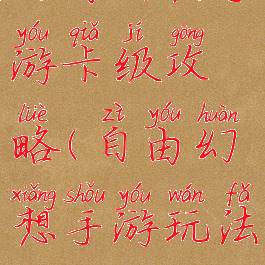 yóu qiǎ jí gōng
游卡级攻
lüè zì yóu huàn
略(自由幻
xiǎng shǒu yóu wán fǎ
想手游玩法